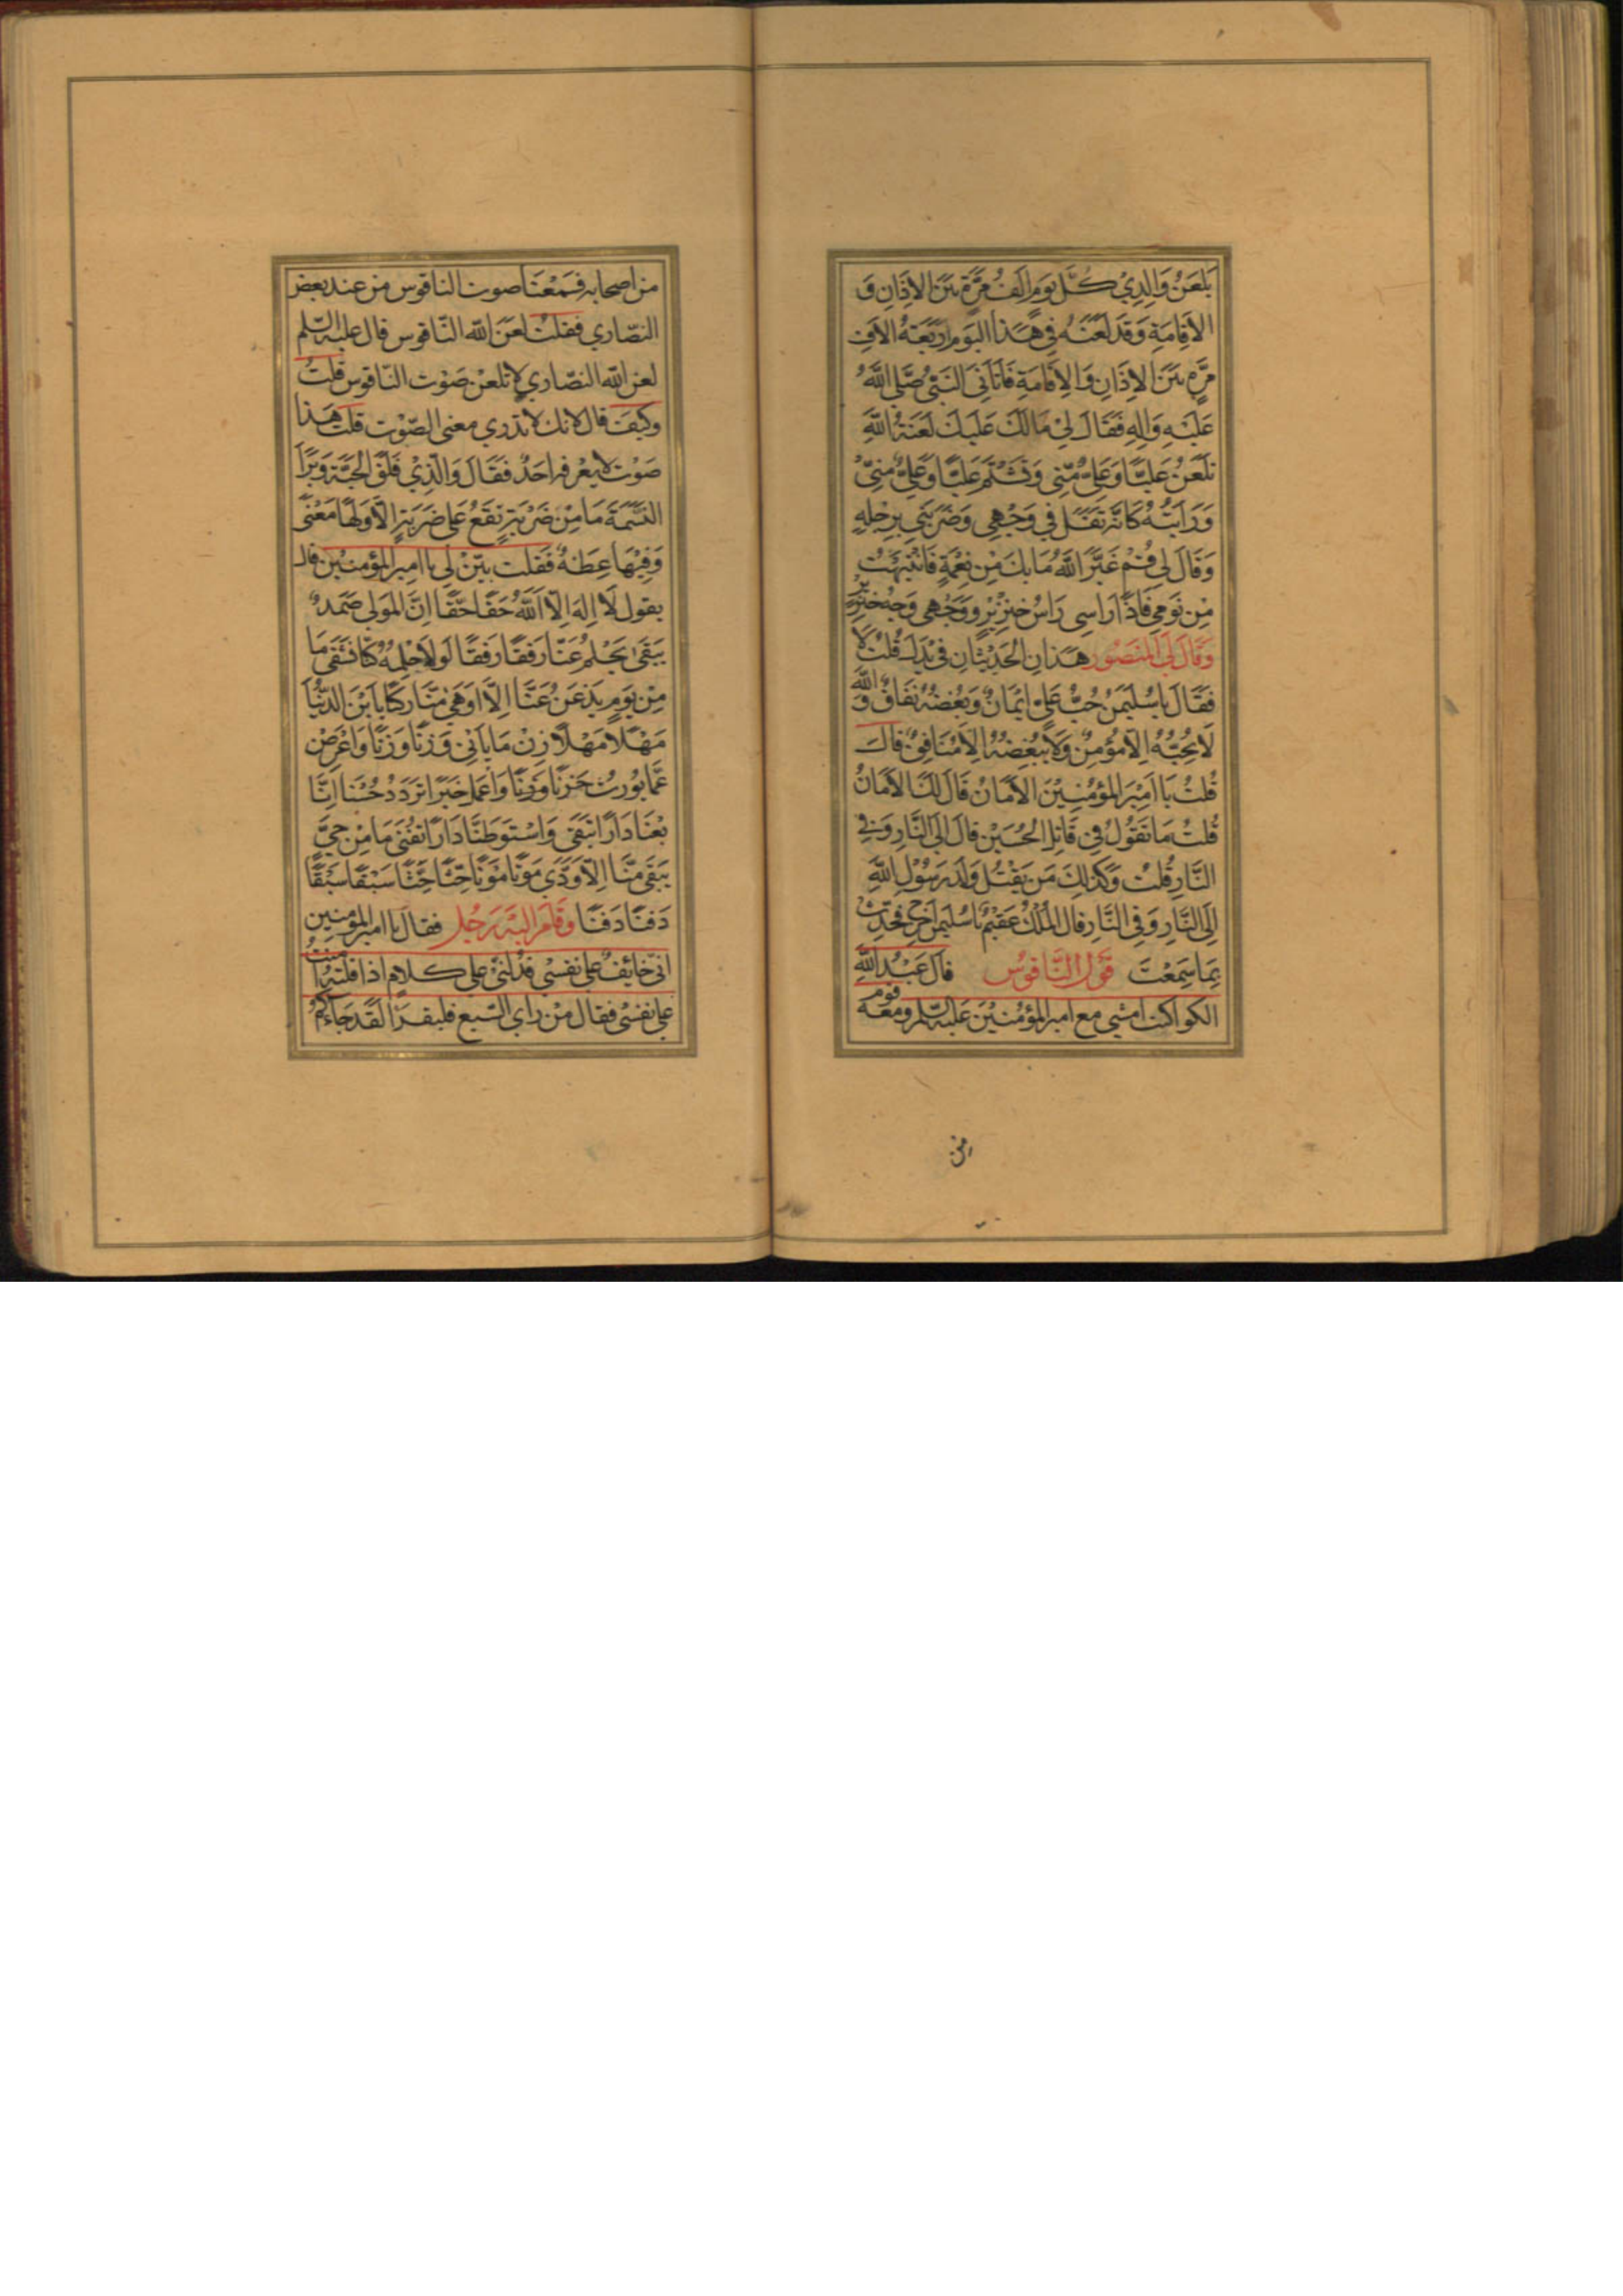 يَلْعَنُ وَالِدِيْ كُلَّ يَوْمٍ اَلْفَ مَرَّةٍ بَيْنَ الْاَذَانِ وَ
الْاِقَامَةِ وَقَدْ لَعَنَهُ فِي هٰذَا الْيَوْمِ اَرْبَعَةَ الْاَفِ
مَرَّةٍ بَيْنَ الْاَذَانِ وَالْاِقَامَةِ فَاَتَانِيَ النَّبِيُّ صَلَّى اللّٰهُ
عَلَيْهِ وَاٰلِهِ فَقَالَ لِيْ مَالَكَ عَلَيْكَ لَعْنَةُ اللّٰهِ
تَلْعَنُ عَلِيًّا وَعَلِيٌّ مِنِّي وَتَشْتِمُ عَلِيًّا وَعَلِيٌّ مِنِّيْ
وَرَاَيْتُهُ كَاَنَّهُ تَفَلَ فِي وَجْهِي وَضَرَبَنِي بِرِجْلِهِ
وَقَالَ لِي قُمْ غَيَّرَ اللّٰهُ مَا بِكَ مِنْ نِعْمَةٍ فَانْتَبَهْتُ
مِنْ نَوْمِي فَاِذًا رَاسِي رَاسُ خِنْزِيْرٍ وَوَجْهِي وَجْهُ خِنْزِيْرٍ
وَقَالَ لِيَ الْمَنْصُور هٰذَانِ الْحَدِيْثَانِ فِيْ يَدِكَ قُلْتُ لَا
فَقَالَ يَا سُلَيْمٰنُ حُبُّ عَلِيٍّ اِيْمَانٌ وَبُغْضُهُ نِفَاقٌ وَاللّٰهِ
لَا يُحِبُّهُ اِلَّا مُؤْمِنٌ وَلَا يُبْغِضُهُ اِلَّا مُنَافِقٌ قَالَ
قُلْتُ يَا اَمِيْرَ الْمُؤْمِنِيْنَ الْاَمَانُ قَالَ لَكَ الْاَمَانُ
قُلْتُ مَا تَقُوْلُ فِيْ قَاتِلِ الْحُسَيْنِ قَالَ اِلَى النَّارِ وَفِي
النَّارِ قُلْتُ وَكَذٰلِكَ مَنْ يَقْتُلُ وَلَدَ رَسُوْلِ اللّٰهِ
اِلَى النَّارِ وَفِي النَّارِ قَالَ الْمُلْكُ عَقِيْمٌ يَا سُلَيْمٰنُ اخْرُجْ فَحَدِّثْ
بِمَا سَمِعْتَ قَوْلُ النَّاقُوْسُ قَالَ عَبْدُ اللّٰهِ
الكوا كنت امشي مع امير المؤمنين عليه السلم ومعه قوم
من اصحابه فسمعنا صوت الناقوس من عند بعض
النصاري فقلت لعن الله الناقوس قال عليه السلم
لعن الله النصاري لا تلعن صوت الناقوس قلت
وكيف قال لانك لا تدري معنى الصوت قلت هذا
صوت لا يعرفه احد فقال والذي فلق الحبة وبرا
النسمة ما من ضربة تقع على ضربة الا ولها معنى
وفيها عظة فقلت بين لي يا امير المؤمنين قال
يقول لا اله الا الله حقا حقا ان المولى صمد
يبقى يحلم عنا رفقا رفقا لولا حلمه كنا نشقى ما
من يوم يذعن عنا الا اوهى منا ركنا يا ابن الدنيا
مهلا مهلا زن ما ياتي وزنا وزنا واعرض
عما يورث حزنا وزنا واعمل خيرا تزدد حسنا انا
بعنا دارا تبقى واستوطنا دارا تفنى ما من حي
يبقى منا الا ودي موتا موتا حثا حثا سبقا سبقا
دفنا دفنا وقام اليه رجل فقال يا امير المؤمنين
اني خائف على نفسي فدلني على كلام اذا قلته امنت
على نفسي فقال من راي السبع فليقرا لقد جاءكم
من